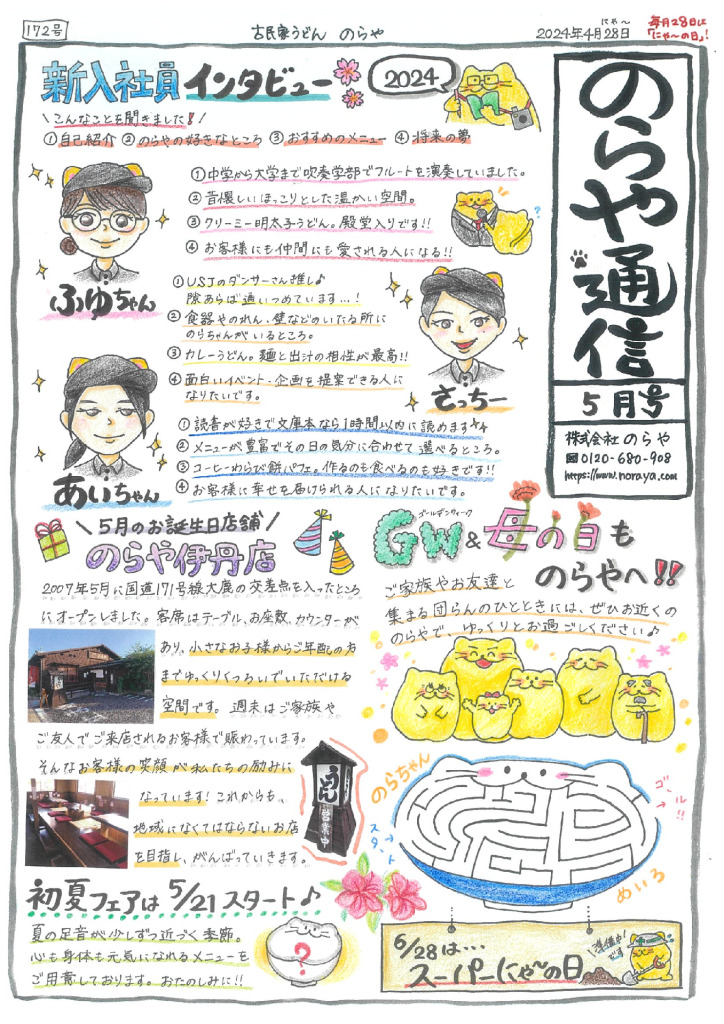 172号
古民家うどん のらや
にゃ〜
2024年4月28日
毎月28日は
「にゃ〜の日」!
のらや通信
5月号
株式会社 のらや
0120-680-908
https://www.noraya.com
新入社員インタビュー
2024
\ こんなことを聞きました! /
①自己紹介 ②のらやの好きなところ ③おすすめのメニュー ④将来の夢
①中学から大学まで吹奏学部でフルートを演奏していました。
②昔懐しいほっこりとした温かい空間。
③クリーミー明太子うどん。殿堂入りです!!
④お客様にも仲間にも愛される人になる!!
ふゆちゃん
①USJのダンサーさん推し♪
隙あらば通いつめています…!
②食器やのれん、壁などのいたる所に
のらちゃんがいるところ。
③カレーうどん。麺と出汁の相性が最高!!
④面白いイベント・企画を提案できる人に
なりたいです。
さっちー
①読書が好きで文庫本なら1時間以内に読めます
②メニューが豊富でその日の気分に合わせて選べるところ。
③コーヒーわらび餅パフェ。作るのも食べるのも好きです!!
④お客様に幸せを届けられる人になりたいです。
あいちゃん
\ 5月のお誕生日店舗 /
のらや伊丹店
2007年5月に国道171号線大鹿の交差点を入ったところ
にオープンしました。客席はテーブル、お座敷、カウンターが
あり、小さなお子様からご年配の方
までゆっくりくつろいでいただける
空間です。 週末はご家族や
ご友人でご来店されるお客様で賑わっています。
そんなお客様の笑顔が私たちの励みに
なっています! これからも、
地域になくてはならないお店
を目指し、がんばっていきます。
うどん
営業中
ゴールデンウィーク
GW&母の日も
のらやへ!!
ご家族やお友達と
集まる団らんのひとときには、ぜひお近くの
のらやで、ゆっくりとお過ごしください♪
のらちゃん
スタート
ゴール!!
めいろ
初夏フェアは 5/21 スタート♪
夏の足音が少しずつ近づく季節。
心も身体も元気になれるメニューを
ご用意しております。おたのしみに!!
?
6/28は…
スーパーにゃ〜の日
準備中!
です